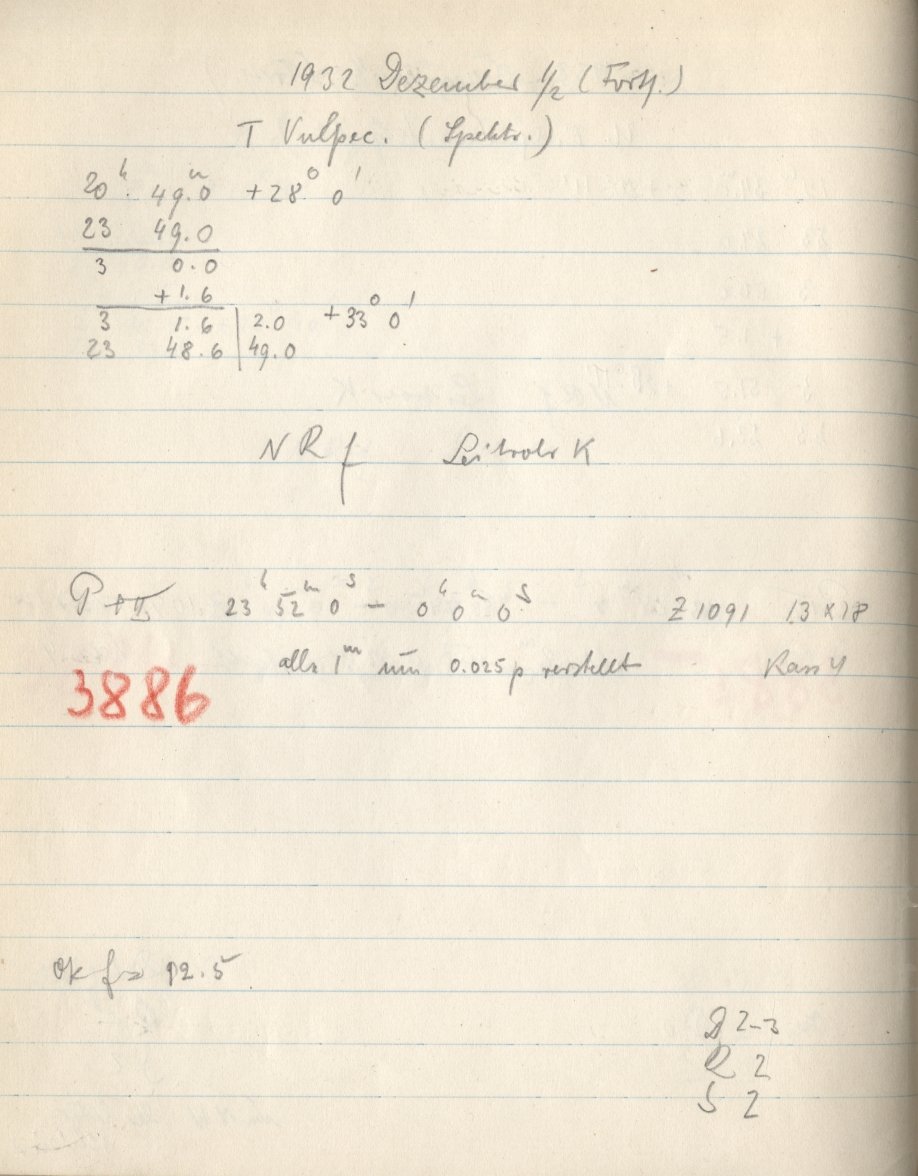 1932 Dezember 1/2 (Forts.)
T Vulpec. (Spektr.)
20ʰ 49.ᵐ0 +28° 0'
23 49.0
3 0.0
+1.6
3 1.6 | 2.0 +33° 0'
23 48.6 | 49.0
NR f Leitrohr K
P + II 23ʰ 52ᵐ 0ˢ – 0ʰ 0ᵐ 0ˢ Z 1091 13 x 18
alle 1ᵐ um 0.025 p verstellt Kass 4
3886
Ok f = 12.5
2-3
R 2
S 2